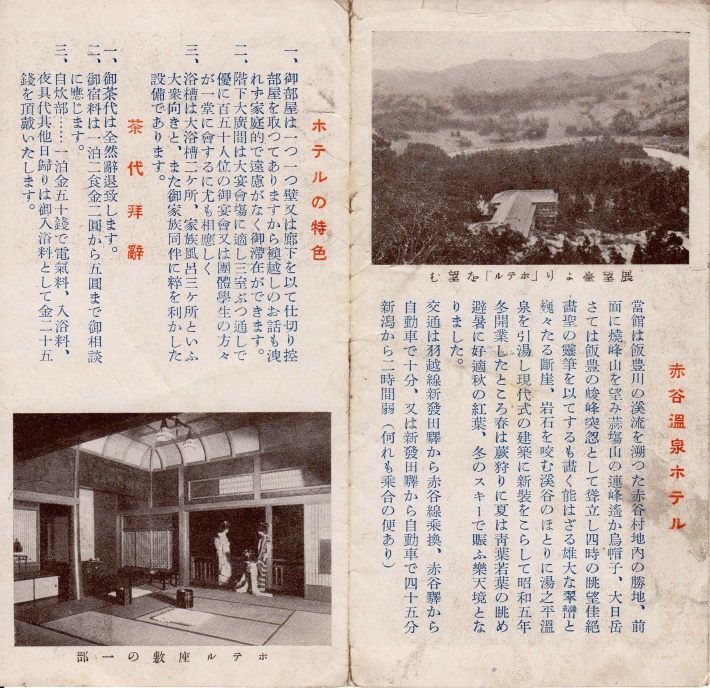 展望臺より「ホテル」を望む
赤谷溫泉ホテル
當館は飯豊川の溪流を溯つた赤谷村地內の勝地、前
面に燒峰山を望み蒜塲山の連峰遙か烏帽子、大日岳
さては飯豊の峻峰突忽として聳立し四時の眺望佳絕
畵聖の靈筆を以てするも書く能はざる雄大な翠巒と
巍々たる斷崖、岩石を咬む溪谷のほとりに湯之平溫
泉を引湯し現代式の建築に新裝をこらして昭和五年
冬開業したところ春は蕨狩りに夏は靑葉若葉の眺め
避暑に好適秋の紅葉、冬のスキーで賑ふ樂天境とな
りました。
交通は羽越線新發田驛から赤谷線乘換、赤谷驛から
自動車で十分、又は新發田驛から自動車で四十五分
新潟から二時間弱（何れも乘合の便あり）
ホテルの特色
一、御部屋は一つ一つ壁又は廊下を以て仕切り控
部屋を取つてありますから襖越しのお話も洩
れず家庭的で遠慮がなく御滯在ができます。
二、階下大廣間は大宴會塲に適し三室ぶつ通しで
優に百五十人位の御宴會又は團體學生の方々
が一堂に會するに尤も相應しく
三、浴槽は大浴槽二ヶ所、家族風呂三ヶ所といふ
大衆向きと、また御家族同伴に粹を利かした
設備であります。
茶代拜辭
一、御茶代は全然辭退致します。
二、御宿料は一泊二食金二圓から五圓まで御相談
に應じます。
三、自炊部……一泊金五十錢で電氣料、入浴料、
夜具代其他日歸りは御入浴料として金二十五
錢を頂戴いたします。
ホテル座敷の一部